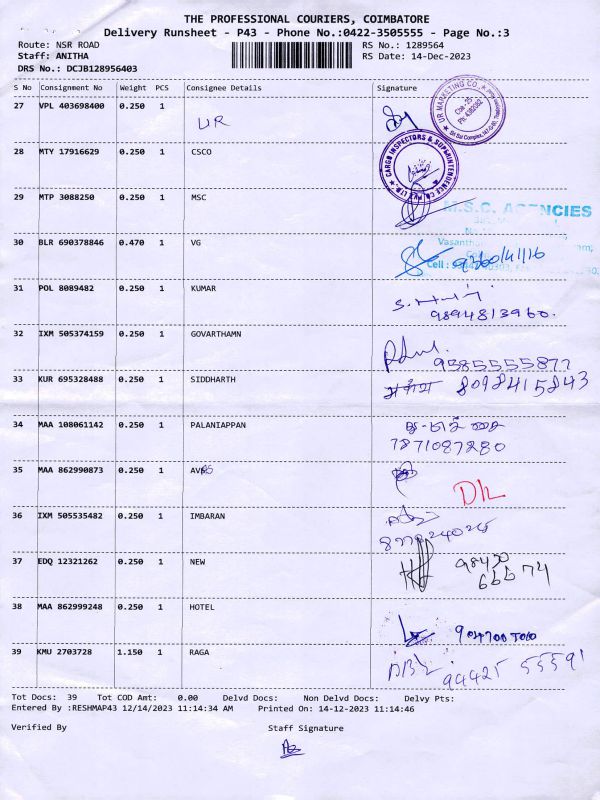 THE PROFESSIONAL COURIERS, COIMBATORE
Delivery Runsheet - P43 - Phone No.:0422-3505555 - Page No.:3
Route: NSR ROAD RS No.: 1289564
Staff: ANITHA RS Date: 14-Dec-2023
DRS No.: DCJB128956403
S No Consignment No Weight PCS Consignee Details Signature
27 VPL 403698400 0.250 1 UR
UR MARKETING CO.,
28 MTY 17916629 0.250 1 CSCO
CARGO INSPECTORS & SUPERINTENDENCE CO. PVT. LTD.
29 MTP 3088250 0.250 1 MSC
M.S.C. AGENCIES
30 BLR 690378846 0.470 1 VG
Cell :
31 POL 8089482 0.250 1 KUMAR
9894813960.
32 IXM 505374159 0.250 1 GOVARTHAMN
9385555877
33 KUR 695328488 0.250 1 SIDDHARTH
8098415843
34 MAA 108061142 0.250 1 PALANIAPPAN
7871087280
35 MAA 862990873 0.250 1
36 IXM 505535482 0.250 1 IMBARAN
37 EDQ 12321262 0.250 1 NEW
98430
66674
38 MAA 862999248 0.250 1 HOTEL
39 KMU 2703728 1.150 1 RAGA
94425 55591
Tot Docs: 39 Tot COD Amt: 0.00 Delvd Docs: Non Delvd Docs: Delvy Pts:
Entered By :RESHMAP43 12/14/2023 11:14:34 AM Printed On: 14-12-2023 11:14:46
Verified By Staff Signature